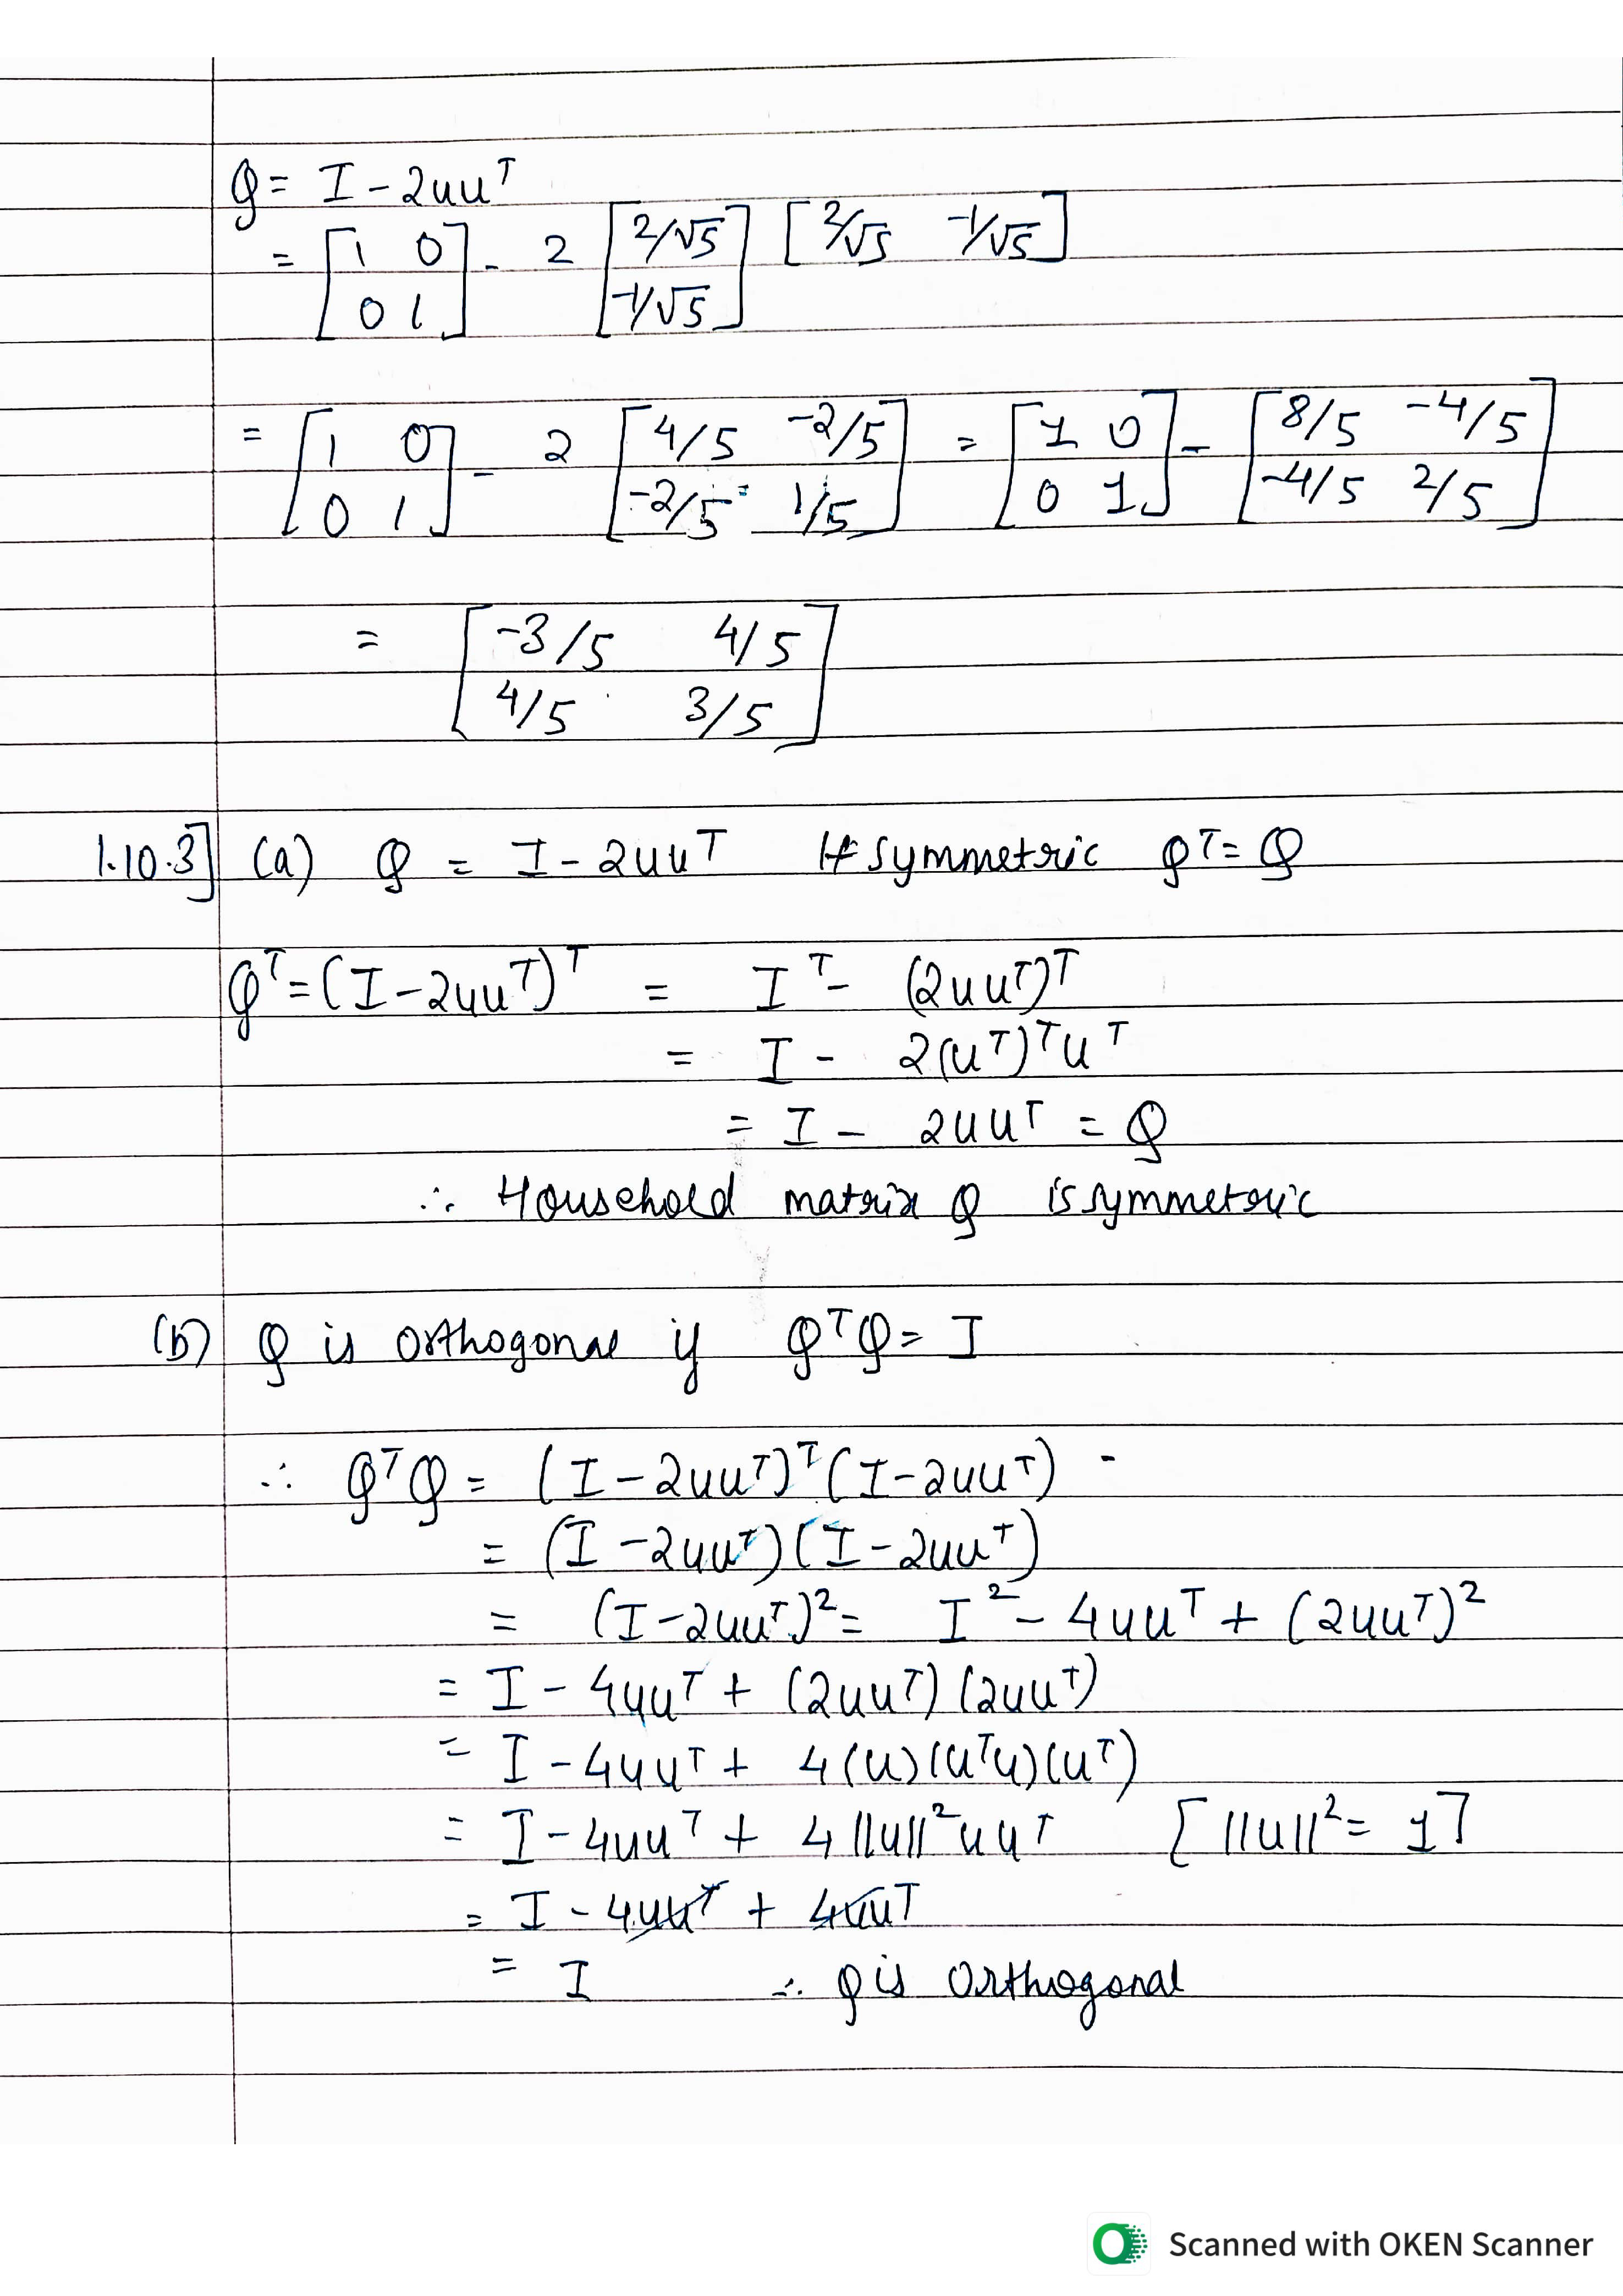 Q = I - 2uuᵀ
= [1 0; 0 1] - 2 [2/√5; -1/√5] [2/√5 -1/√5]
= [1 0; 0 1] - 2 [4/5 -2/5; -2/5 1/5] = [1 0; 0 1] - [8/5 -4/5; -4/5 2/5]
= [-3/5 4/5; 4/5 3/5]
1.10.3] (a) Q = I - 2uuᵀ # symmetric Qᵀ = Q
Qᵀ = (I - 2uuᵀ)ᵀ = Iᵀ - (2uuᵀ)ᵀ
= I - 2(uᵀ)ᵀuᵀ
= I - 2uuᵀ = Q
∴ Household matrix Q is symmetric
(b) Q is orthogonal if QᵀQ = I
∴ QᵀQ = (I - 2uuᵀ)ᵀ(I - 2uuᵀ)
= (I - 2uuᵀ)(I - 2uuᵀ)
= (I - 2uuᵀ)² = I² - 4uuᵀ + (2uuᵀ)²
= I - 4uuᵀ + (2uuᵀ)(2uuᵀ)
= I - 4uuᵀ + 4(u)(uᵀu)(uᵀ)
= I - 4uuᵀ + 4||u||²uuᵀ [||u||² = 1]
= I - 4uuᵀ + 4uuᵀ
= I ∴ Q is Orthogonal
Scanned with OKEN Scanner